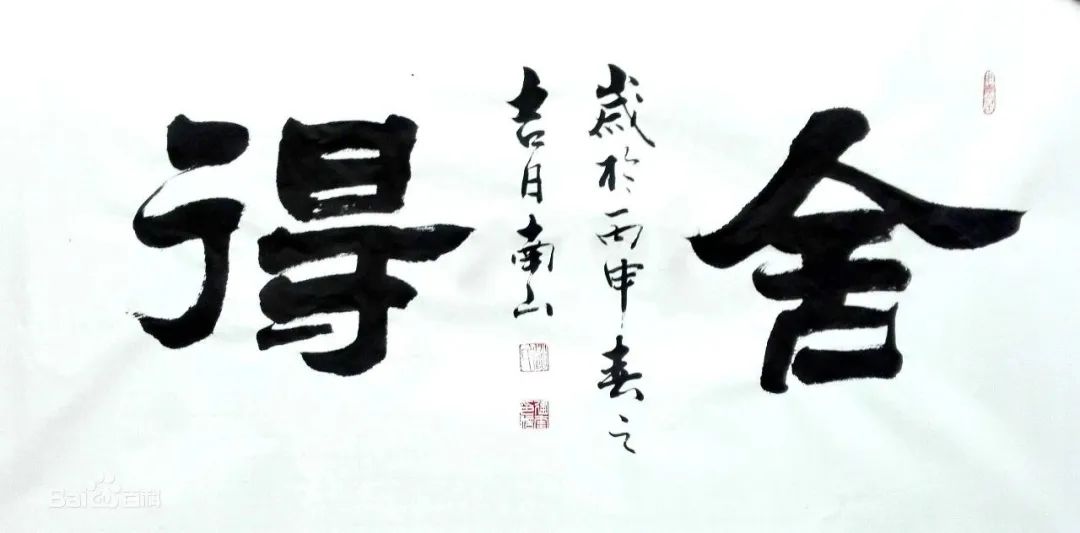 舍
歲於丙申春之
吉月南山
得
Bai百科